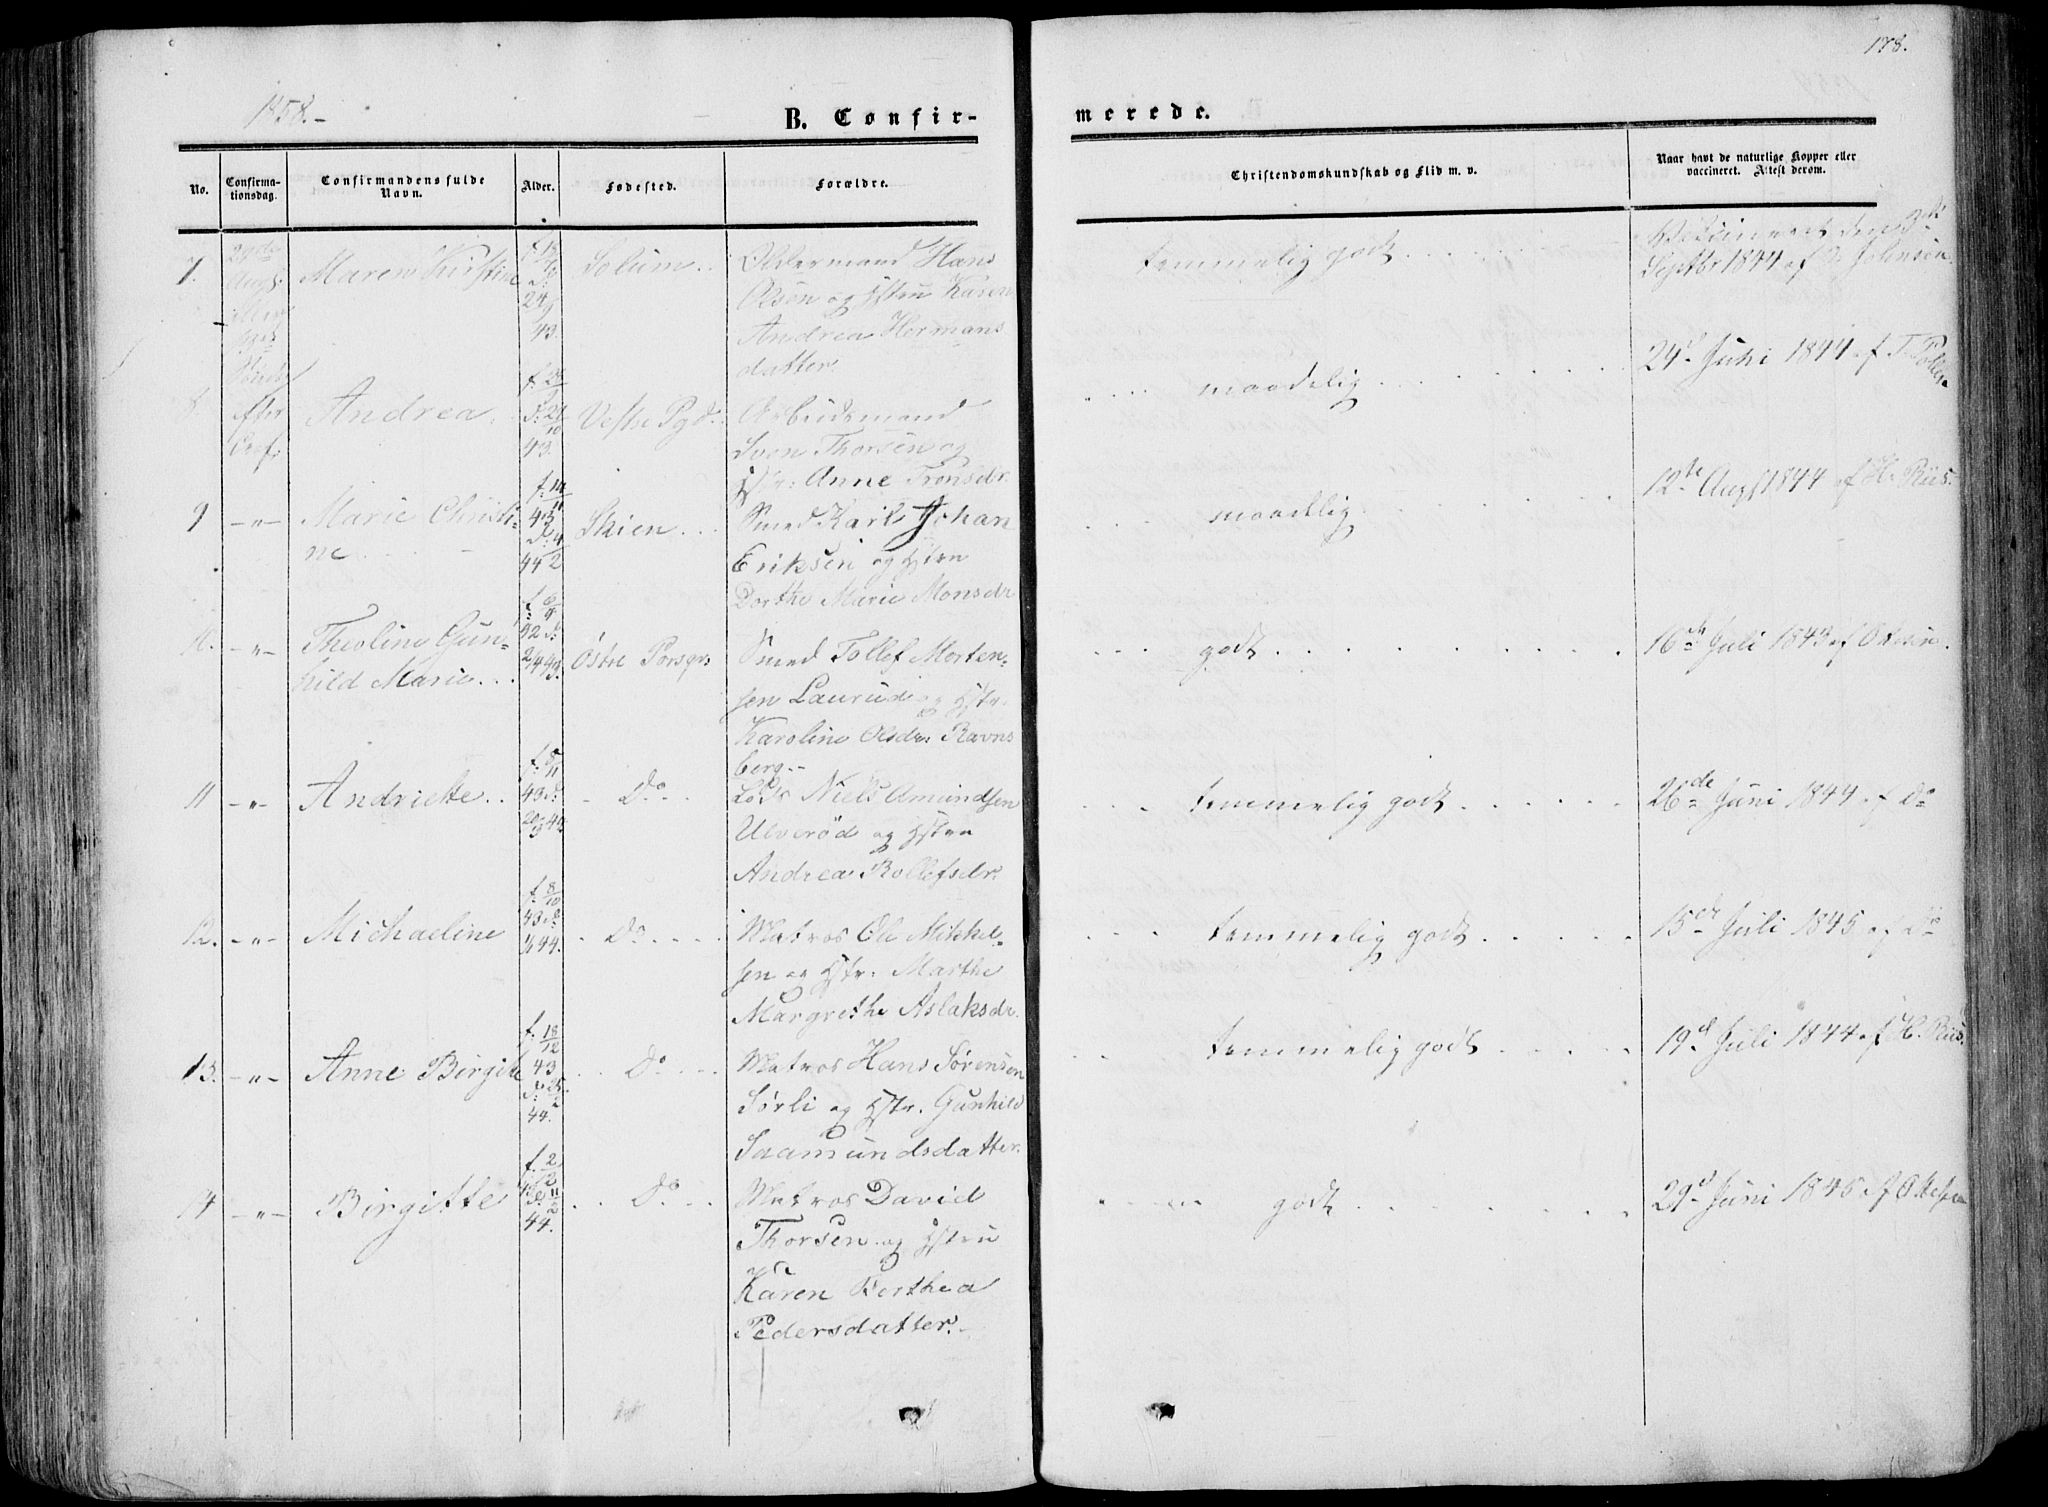 178.
1858.-
B. Confir-
merede.
No.
Confirma-
tionsdag.
Confirmandens fulde
Navn.
Alder.
Fødested.
Forældre.
Christendomskundskab og Flid m. v.
Naar havt de naturlige Kopper eller
vaccineret. Attest derom.
7.
Maren Kirstine
24/9
43.
Solum..
Oldermand Hans
Olsen og Hstru Karen
Andrea Hermans
datter.
temmelig godt
Vaccineret den 3die
Septbr 1844 af Johnsen.
8.
Andrea
43.
Vestre Pgd.
Arbeidsmand
Sven Thorsen og
Hstr: Anne Tronsdr.
maadelig
24d Juni 1844 af
9
-"-
Marie Christi-
ne
f. 14/11
43
d: 4/2
44
Skien...
Smed Karl Johan
Eriksen og Hstru
Dorthe Marie Monsdr
maadelig
12te Augs 1844 af H. Riis.
10.
-"-
Theoline Gun-
hild Marie...
Østre Porsgr:
Smed Tollef Morten-
sen Laurud og Hstr.
Karoline Olsdr. Ravns
berg.-
godt
16de Juli 1843 af Ottesen.
11
-"-
Andriette..
f. 5/11
43 d:
- Do -
Lods Niels Amundsen
Ulverød og Hstru
Andrea Rollefsdr.
temmelig godt
26de Juni 1844 af Do
12.
-"-
Michaeline
f. 8/10
43 d:
44.
Do
Matros Ole Mikkel-
sen og Hstr: Marthe
Margrethe Aslaksdr.
temmelig godt
15de Juli 1845 af Do
13.
-"-
Anne Birgitte
f. 18/12
43
d: 25/2
44.
Do
Matros Hans Sørensen
Sørli og Hstr. Gunhild
Saamundsdatter.
temmelig godt
19d Juli 1844 af H. Riis.
14
-"-
Birgitte
d: 11/2
44.
Do
Matros David
Thorsen og Hstru
Karen Berthea
Pedersdatter.-
godt
29d Juni 1845 af Ottesen